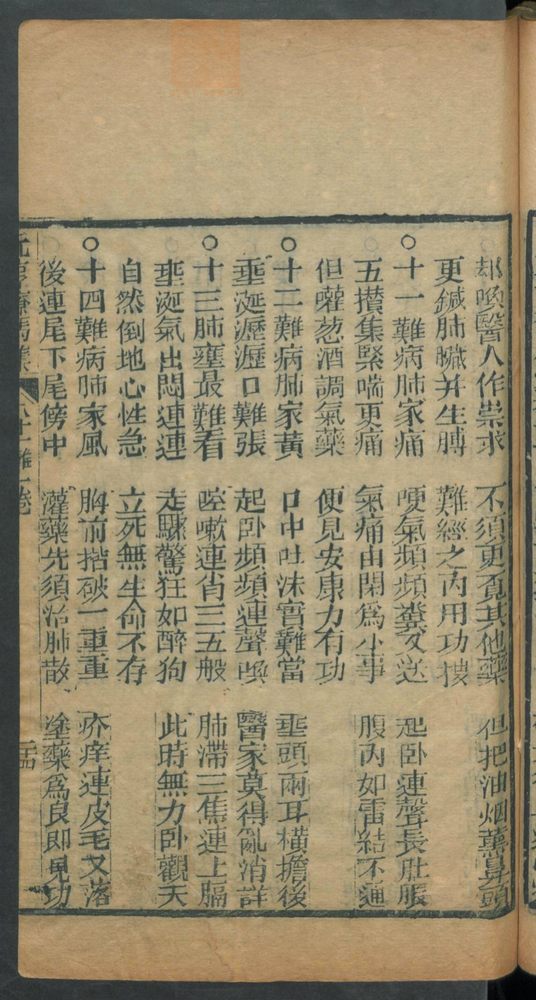 却喚醫人作祟求　不須更覓其他藥　但把油烟薰鼻頭
更鍼肺臟并生膊　難經之內用功搜
○十一難病肺家痛　哽氣頻頻糞又送　起卧連聲長肚脹
五攢集緊喘更痛　氣痛由閑爲小事　腹內如雷結不通
但嚾葱酒調氣藥　便見安康力有功
○十二難病肺家黃　口中吐沫實難當　垂頭兩耳橫擔後
垂涎瀝瀝口難張　起卧頻頻連聲喚　醫家莫得亂消詳
○十三肺壅最難看　咳嗽連省三五般　肺滯三焦連上膈
垂涎氣出悶連連　走驟驚狂如醉狗　此時無力卧觀天
自然倒地心性急　立死無生命不存
○十四難病肺家風　胸前揩破一重重　疥痒連皮毛又落
後連尾下尾傍中　灌藥先須治肺散　塗藥爲良即見功
元亨療馬集　八十一難一卷　二十四